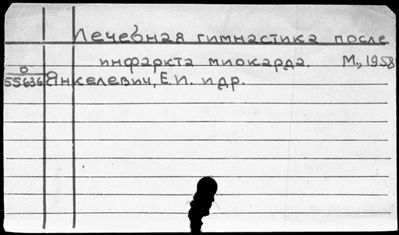 Лечебная гимнастика после
инфаркта миокарда. М., 1958
О
55636 Янкелевич, Е.И. и др.